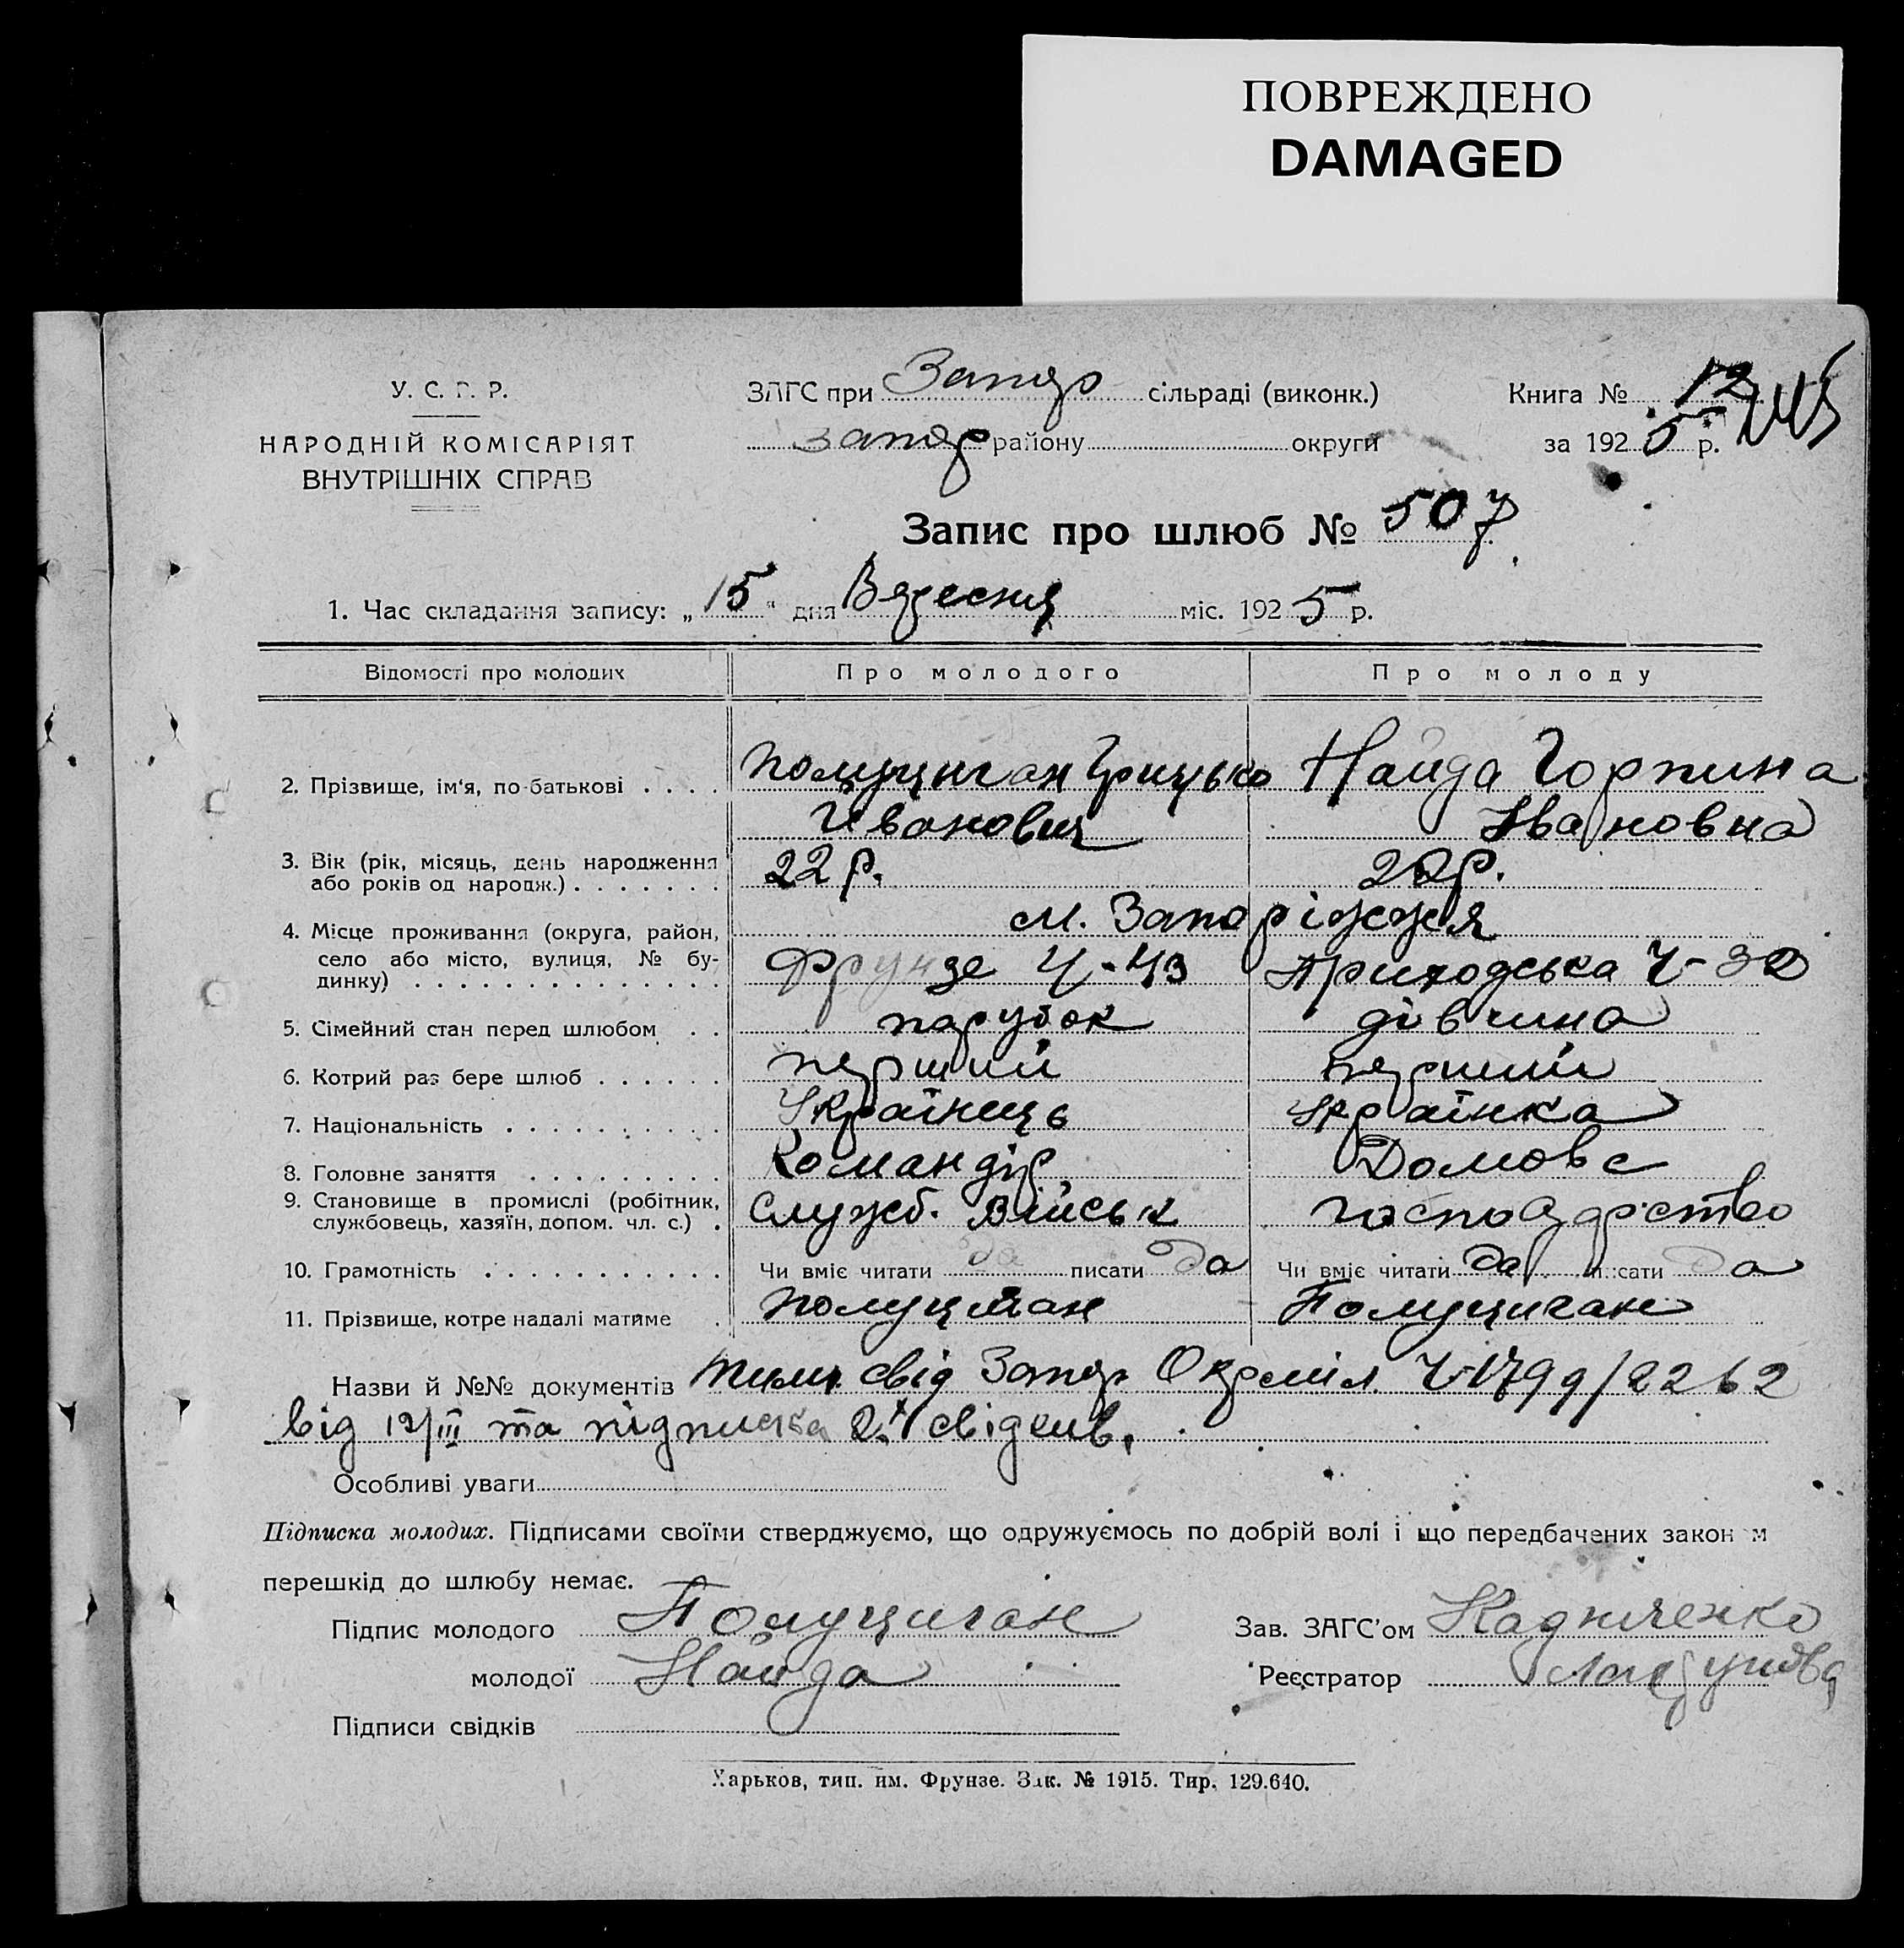 ПОВРЕЖДЕНО
DAMAGED
У. С. Р. Р.
НАРОДНІЙ КОМІСАРІЯТ
ВНУТРІШНІХ СПРАВ
ЗАГС при Запор сільраді (виконк.)
Запор району округи
Книга № 12
за 1925 р.
Запис про шлюб № 507
1. Час складання запису: „15“ дня Вересня міс. 1925 р.
Відомості про молодих Про молодого Про молоду
2. Прізвище, ім‘я, по-батькові . . . . Полуциган Грицько Найда Горпина
Іванович Івановна
3. Вік (рік, місяць, день народження
або років од народж.) . . . . . . . 22 р. 22 р.
4. Місце проживання (округа, район, м. Запоріжжя
село або місто, вулиця, № бу- Фрунзе Ч-43 Приходська Ч-32
динку) . . . . . . . . . . . . . .
5. Сімейний стан перед шлюбом . . парубок дівчина
6. Котрий раз бере шлюб . . . . . . перший перший
7. Національність . . . . . . . . . . Українець Українка
8. Головне заняття . . . . . . . . . Командір Домове
9. Становище в промислі (робітник,
службовець, хазяїн, допом. чл. с.) . Служб. Військ господарство
10. Грамотність . . . . . . . . . . . Чи вміє читати да писати да Чи вміє читати да писати да
11. Прізвище, котре надалі матиме . Полуциган Полуциган
Назви й №№ документів свід Запор
від 12/III та підписка 2х свідків.
Особливі уваги
Підписка молодих. Підписами своїми стверджуємо, що одружуємось по добрій волі і що передбачених законом
перешкід до шлюбу немає.
Підпис молодого Полуциган Зав. ЗАГС’ом
молодої Найда Реєстратор
Підписи свідків
Харьков, тип. им. Фрунзе. Зак. № 1915. Тир. 129.640.